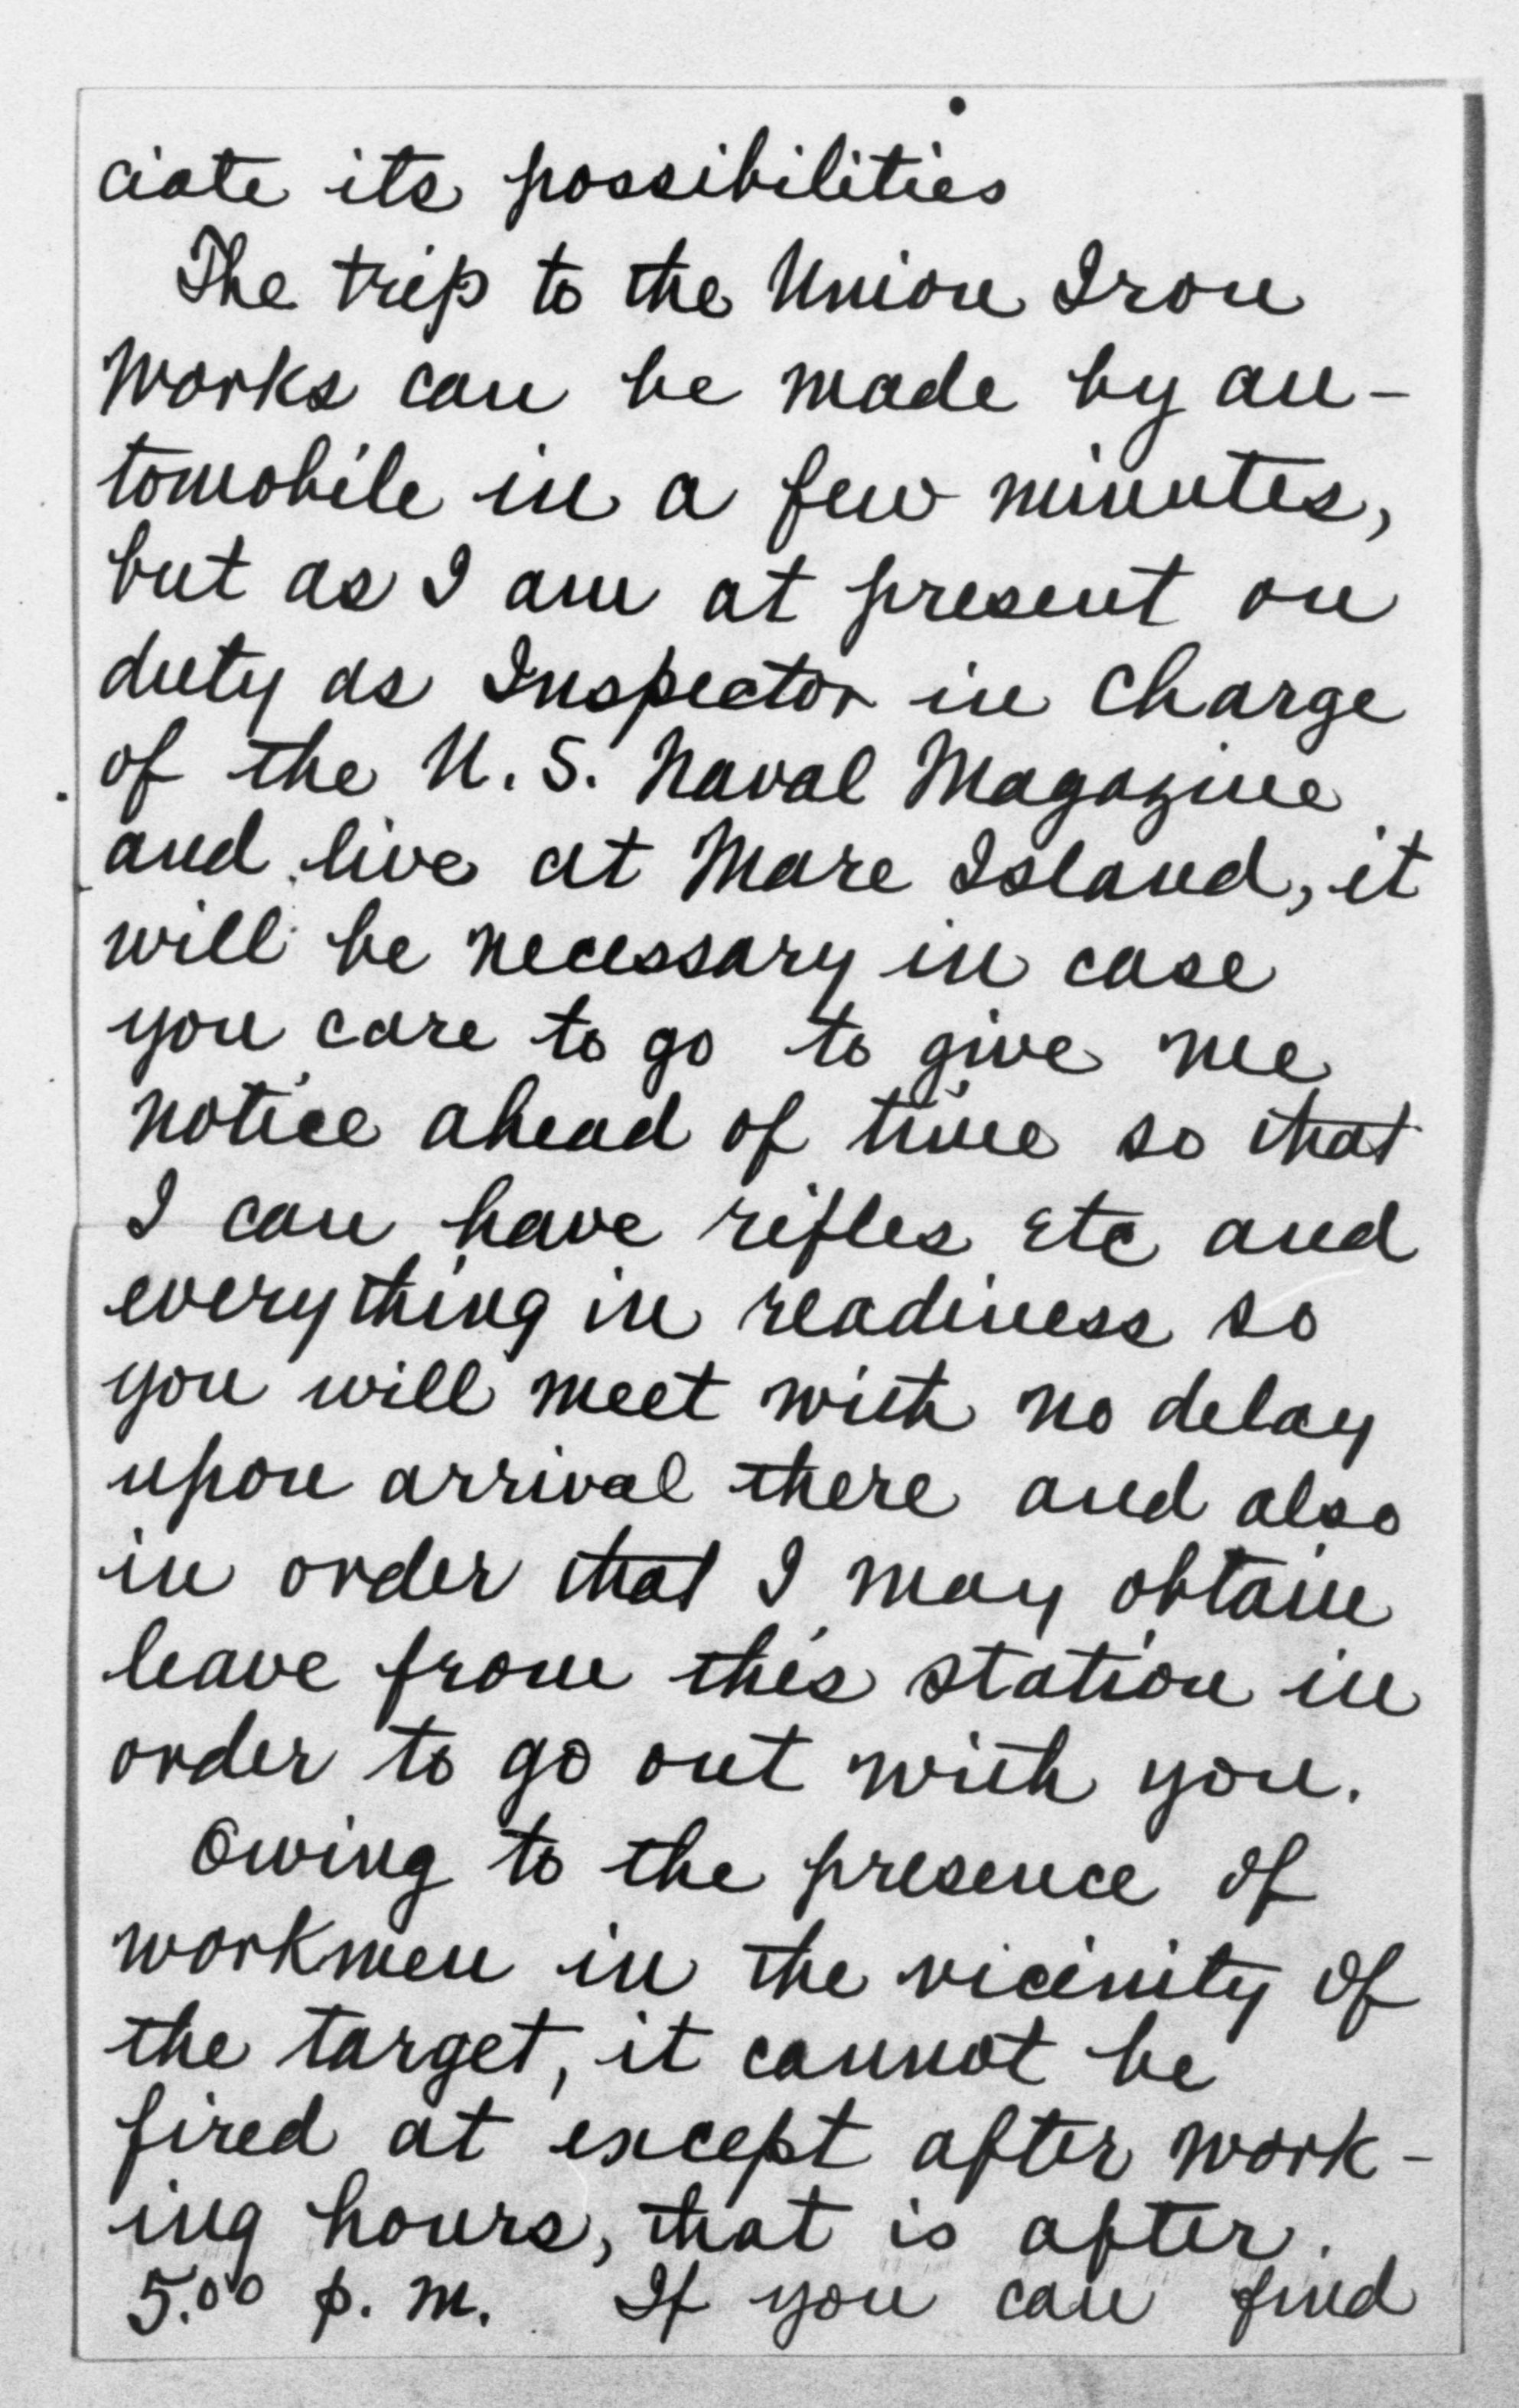 ciate its possibilities
The trip to the Union Iron
Works can be made by au-
tomobile in a few minutes,
but as I am at present on
duty as Inspector in Charge
of the U.S. Naval Magazine
and live at Mare Island, it
will be necessary in case
you care to go to give me
notice ahead of time so that
I can have rifles etc and
everything in readiness so
you will meet with no delay
upon arrival there and also
in order that I may obtain
leave from this station in
order to go out with you.
Owing to the presence of
workmen in the vicinity of
the target, it cannot be
fired at except after work-
ing hours, that is after.
5.00 p.m. If you can find